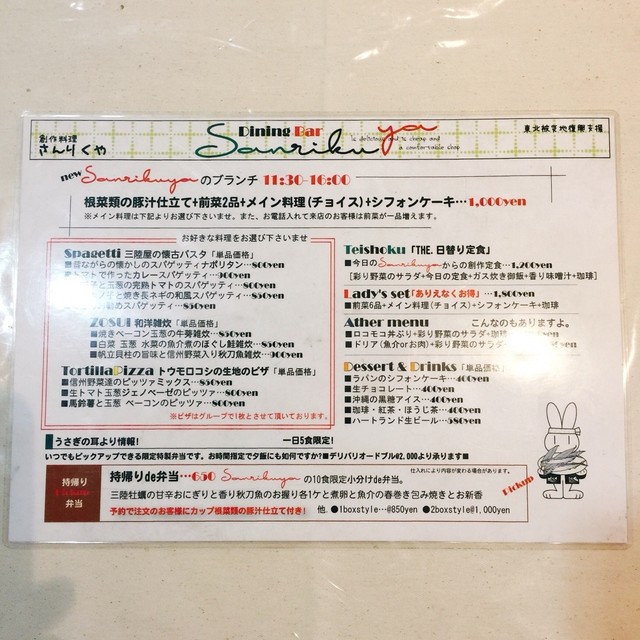 創作料理
さんりくや
Dining Bar
Sanrikuya
is delicious and is cheap and
a comfortable shop
東北被災地復興支援
new Sanrikuyaのブランチ 11:30-16:00
根菜類の豚汁仕立て+前菜2品+メイン料理(チョイス)+シフォンケーキ…1,000yen
※メイン料理は下記よりお選び下さいませ。また、お電話入れて来店のお客様は前菜が一品増えます。
お好きな料理をお選び下さいませ
Spagetti 三陸屋の懐古パスタ「単品価格」
■昔ながらの懐かしのスパゲッティナポリタン…800yen
トマトで作ったカレースパゲッティ…900yen
と玉葱の完熟トマトのスパゲッティ…800yen
と焼き長ネギの和風スパゲッティ…850yen
スパゲッティ…850yen
ZOSUI 和洋雑炊「単品価格」
■焼きベーコン玉葱の牛蒡雑炊…850yen
■白菜 玉葱 水菜の魚介煮のほぐし鮭雑炊…
■帆立貝柱の旨味と信州野菜入り秋刀魚雑炊…900yen
TortillaPizza トウモロコシの生地のピザ「単品価格」
■信州野菜達のピッツァミックス…850yen
■生トマト玉葱ジェノベーゼのピッツァ…850yen
■馬鈴薯と玉葱 ベーコンのピッツァ…800yen
※ピザはグループで1枚とさせて頂いております。
Teishoku「THE.日替り定食」
■今日のSanrikuyaからの創作定食…1,200yen
[彩り野菜のサラダ+今日の定食+ガス炊き御飯+香り味噌汁+珈琲]
Lady's set「ありえなくお得」…1,800yen
■前菜6品+メイン料理(チョイス)+シフォンケーキ+珈琲
Ather menu こんなのもありますよ。
■ロコモコ丼ぶり+彩り野菜のサラダ+珈琲
■ドリア(魚介orお肉)+彩り野菜のサラダ
Dessert & Drinks「単品価格」
■ラパンのシフォンケーキ…400yen
■生チョコレート…400yen
■沖縄の黒糖アイス…400yen
■珈琲・紅茶・ほうじ茶…400yen
■ハートランド生ビール…580yen
うさぎの耳より情報! 一日5食限定!
いつでもピックアップできる限定特製弁当です。お時間指定で夕飯にも如何ですか?■デリバリオードブル¥2,000より承ります■
持帰り
弁当
持帰りde弁当…650 Sanrikuyaの10食限定小分けde弁当。
仕入れにより内容が変わる場合があります。
三陸牡蠣の甘辛おにぎりと香り秋刀魚のお握り各1ケと煮卵と魚介の春巻き包み焼きとお新香
予約で注文のお客様にカップ根菜類の豚汁仕立て付き! 他. ●1boxstyle…@850yen ●2boxstyle@1,000yen
Pickup